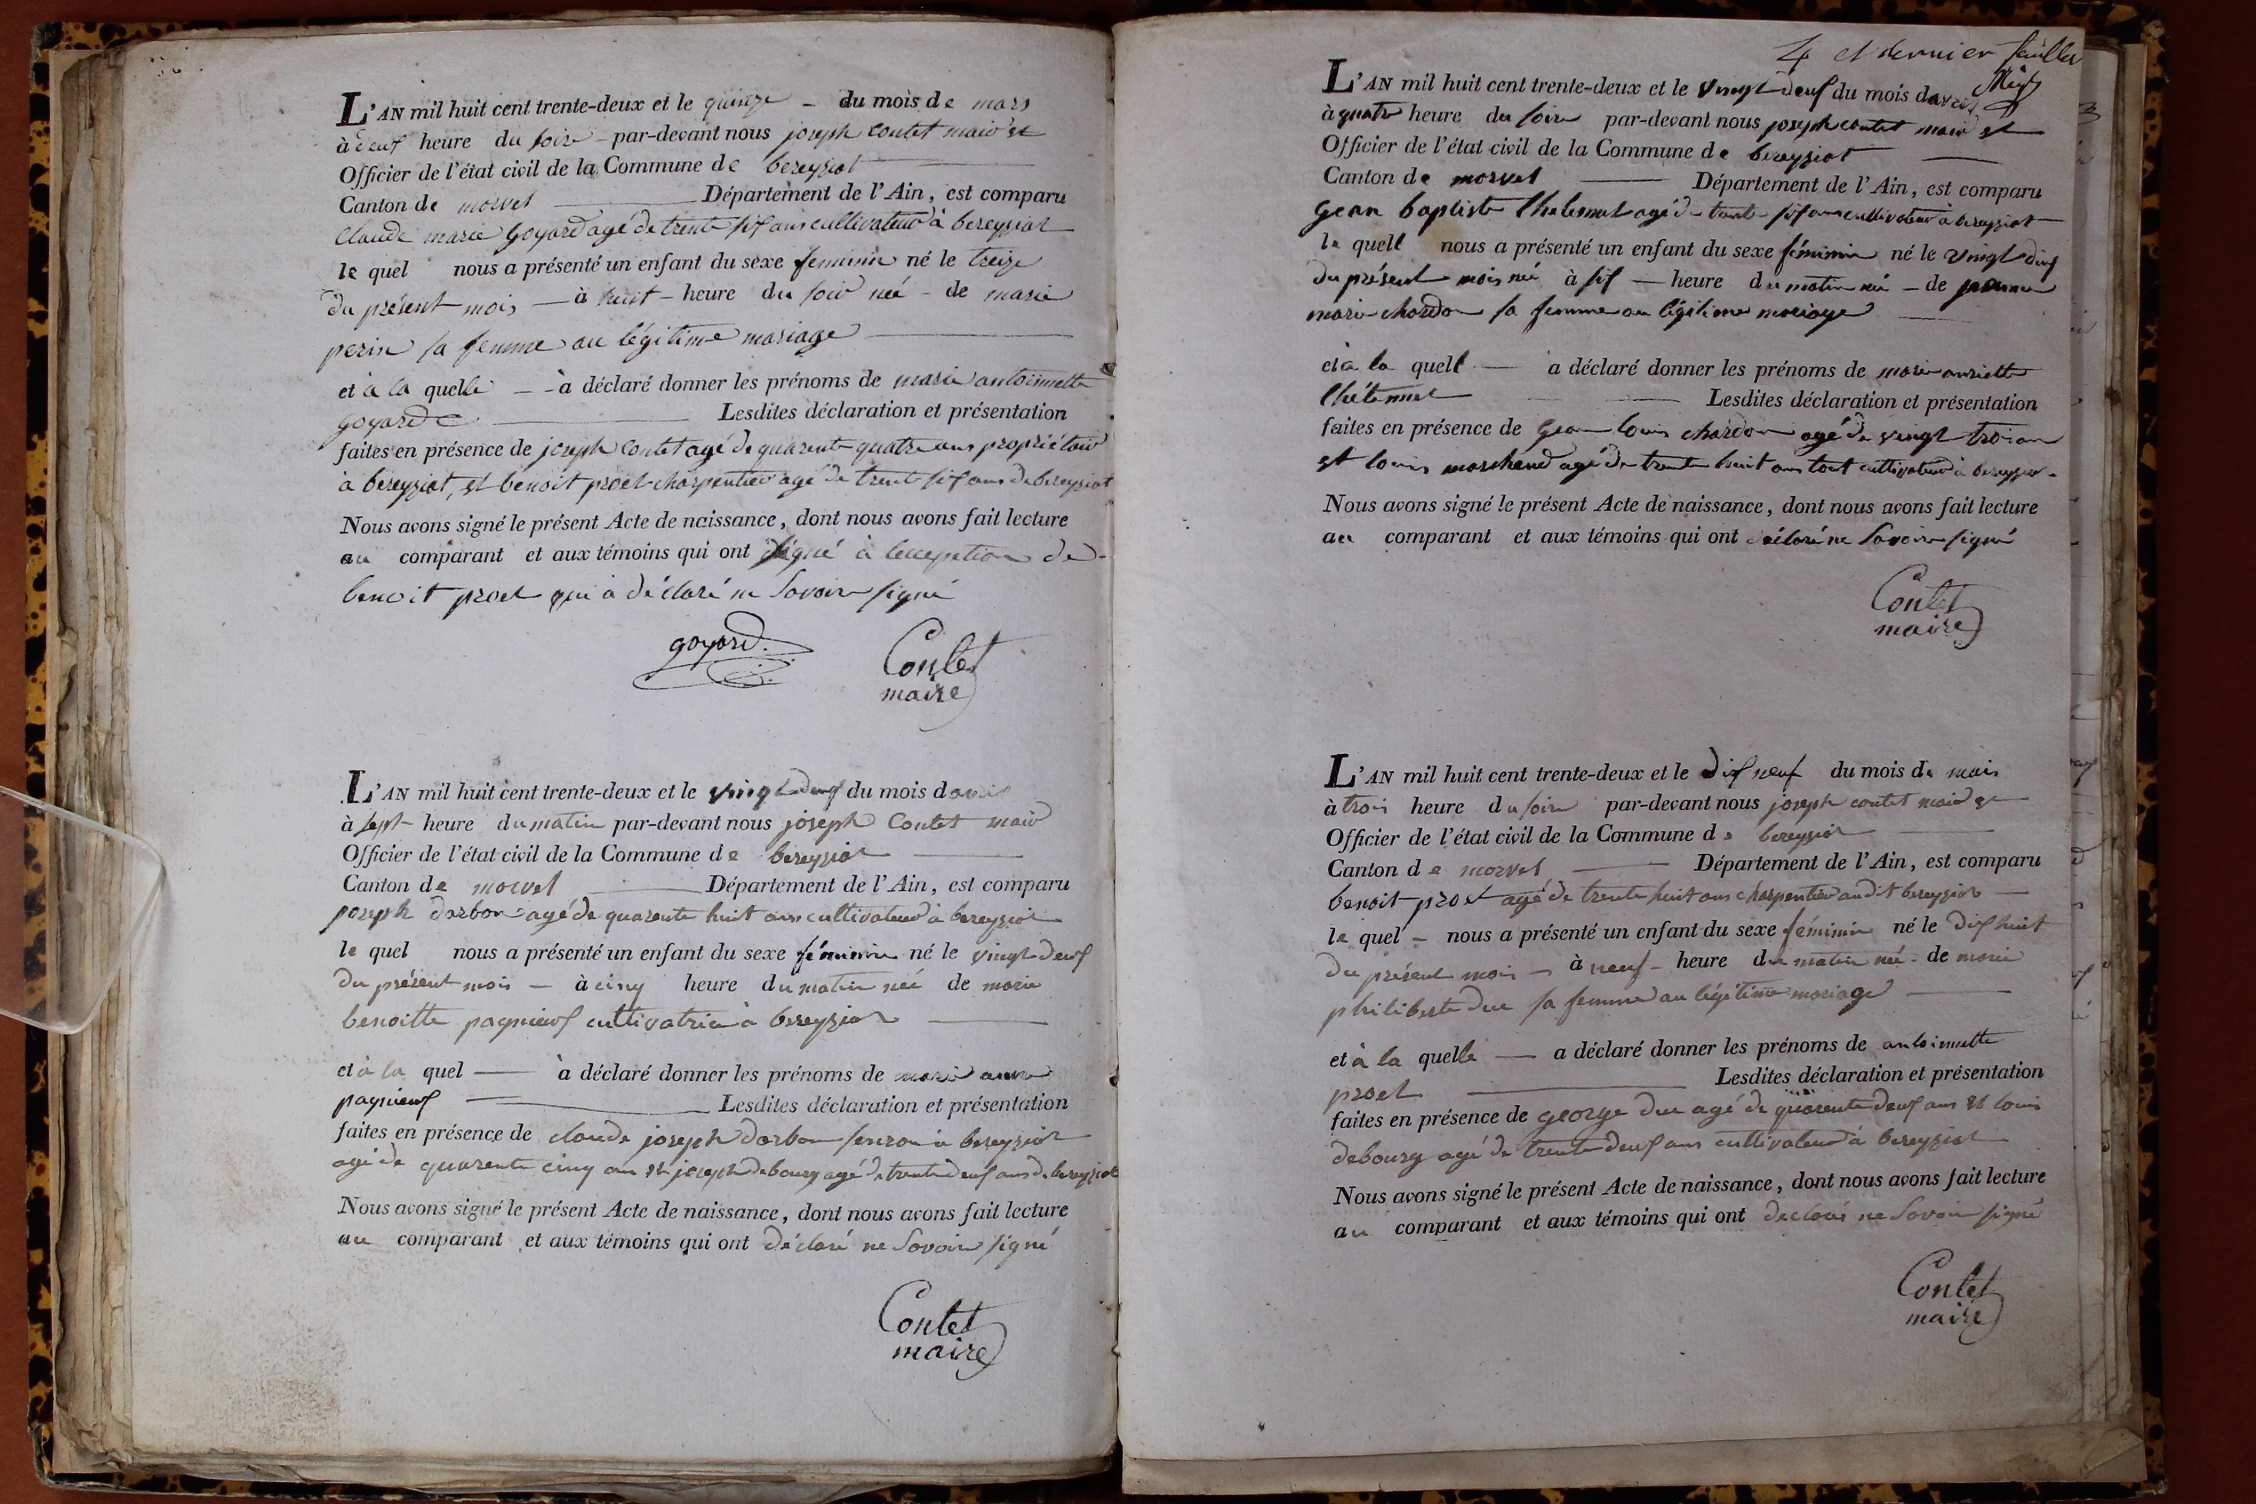 L'AN mil huit cent trente-deux et le quinze du mois de mars
à deux heure du soire par-devant nous joseph contet maire et
Officier de l'état civil de la Commune de bereyziat
Canton de morvel Département de l'Ain, est comparu
Claude marie Goyard agé de trente six ans cultivateur à bereyziat
le quel nous a présenté un enfant du sexe feminin né le treize
du présent mois à huit heure du soir née de marie
perin sa femme au légitime mariage
et à la quelle à déclaré donner les prénoms de marie antoinnette
goyard Lesdites déclaration et présentation
faites en présence de joseph Contet agé de quarente quatre ans propriétaire
à bereyziat, et benoit proet charpentier agé de trente six ans de bereyziat
Nous avons signé le présent Acte de naissance, dont nous avons fait lecture
au comparant et aux témoins qui ont signé à lecception de
benoit proet qui à déclaré ne savoire signé
goyard.
Contet
maire
L'AN mil huit cent trente-deux et le vingt deux du mois davril
à sept heure du matin par-devant nous joseph Contet maire
Officier de l'état civil de la Commune de bereyziat
Canton de morvel Département de l'Ain, est comparu
joseph darbon agé de quarente huit ans cultivateur à bereyziat
le quel nous a présenté un enfant du sexe féminin né le vingt deux
du présent mois à cinq heure du matin née de marie
benoitte pagnieux cultivatrice à bereyziat
et à la quel à déclaré donner les prénoms de marie anne
pagnieux Lesdites déclaration et présentation
faites en présence de claude joseph darbon à bereyziat
agé de quarente cinq ans et joseph debourg agé de trente deux ans de bereyziat
Nous avons signé le présent Acte de naissance, dont nous avons fait lecture
au comparant et aux témoins qui ont déclaré ne savoire signé
Contet
maire
4 et dernier feuillet
L'AN mil huit cent trente-deux et le vingt deux du mois davril
à quatre heure du soire par-devant nous joseph contet maire et
Officier de l'état civil de la Commune de bereyziat
Canton de morvel Département de l'Ain, est comparu
gean baptiste agé de trente six ans cultivateur à bereyziat
le quell nous a présenté un enfant du sexe féminin né le vingt deux
du présent mois née à six heure du matin née de jeanne
marie chardon sa femme au légitime mariage
et à la quell a déclaré donner les prénoms de marie
Lesdites déclaration et présentation
faites en présence de gean louis chardon agé de vingt trois ans
et louis marchand agé de trente huit ans tout cultivateur à bereyziat
Nous avons signé le présent Acte de naissance, dont nous avons fait lecture
au comparant et aux témoins qui ont déclaré ne savoire signé
Contet
maire
L'AN mil huit cent trente-deux et le dix neuf du mois de mais
à trois heure du soire par-devant nous joseph contet maire et
Officier de l'état civil de la Commune de bereyziat
Canton de morvel Département de l'Ain, est comparu
benoit proet agé de trente huit ans charpentier audit bereyziat
le quel nous a présenté un enfant du sexe féminin né le dix huit
du présent mois à neuf heure du matin née de marie
philiberte duc sa femme au légitime mariage
et à la quelle a déclaré donner les prénoms de antoinnette
proet Lesdites déclaration et présentation
faites en présence de george duc agé de quarente deux ans et louis
debourg agé de trente deux ans cultivateur à bereyziat
Nous avons signé le présent Acte de naissance, dont nous avons fait lecture
au comparant et aux témoins qui ont declaré ne savoir signé
Contet
maire